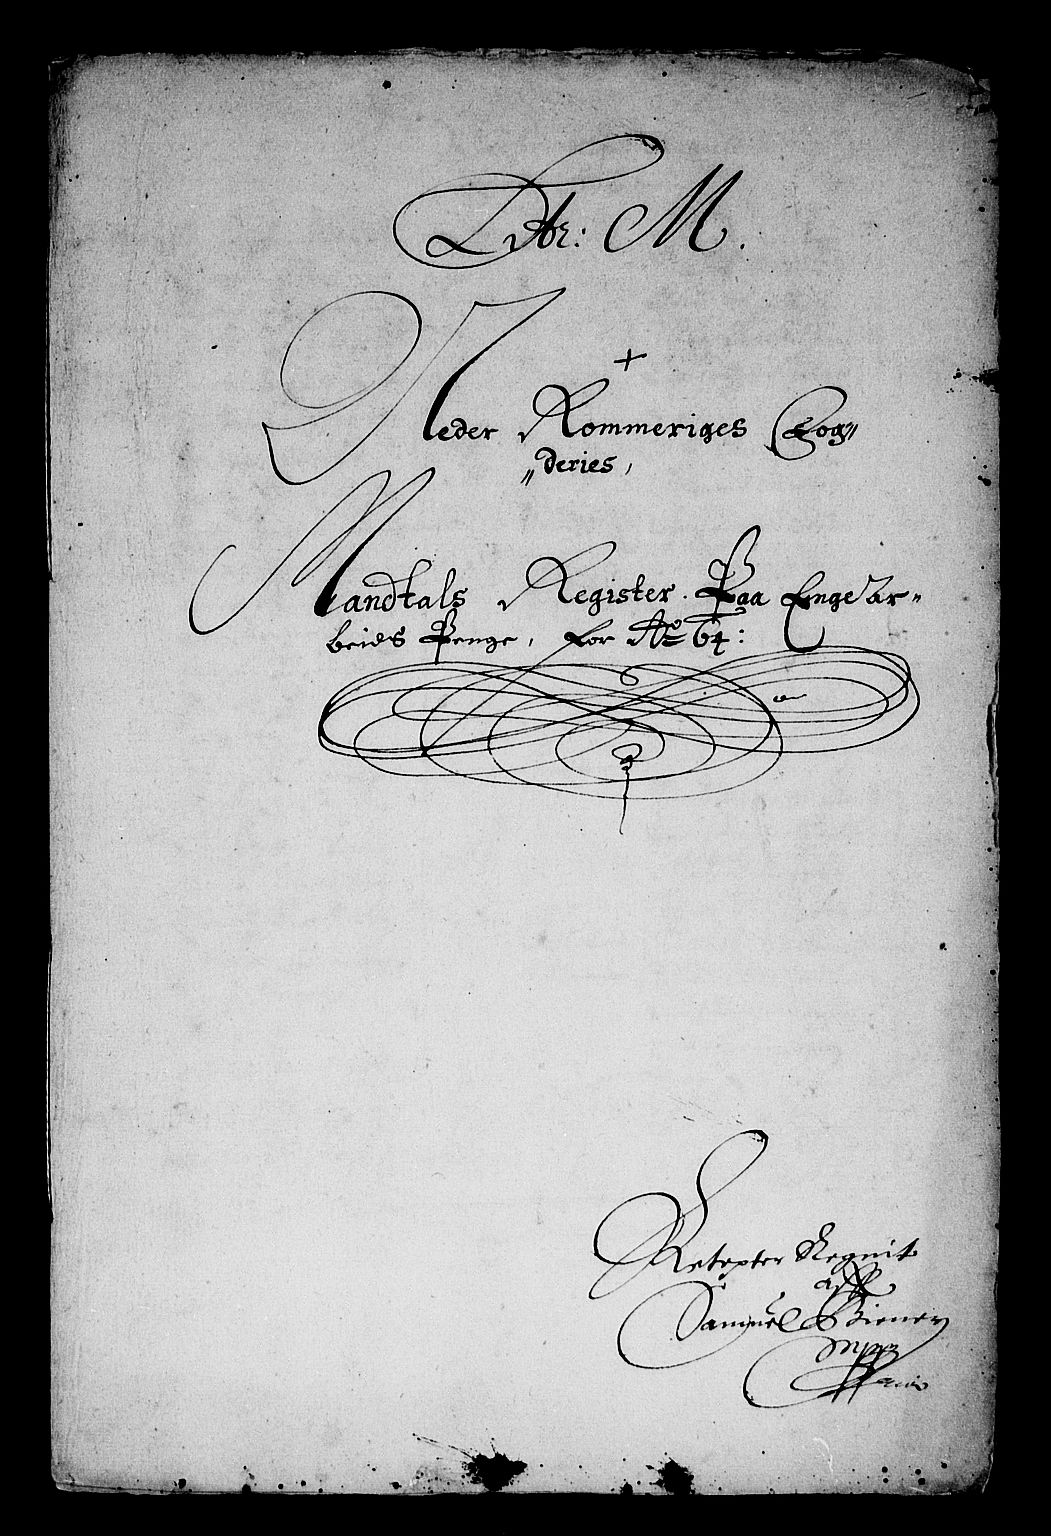 Litr: M.
Neder Rommeriges Fog=
=deries,
Mandtals Register Paa Enge Ar=
beids Penge, for Ao 64:
Samuel
mppr